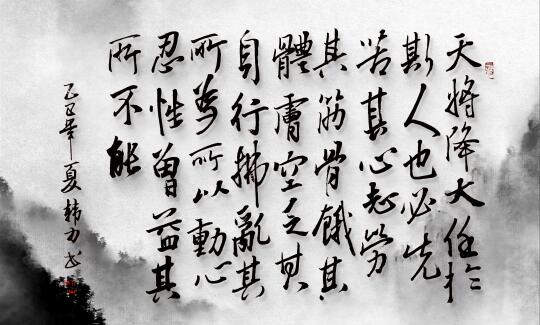 天將降大任於
斯人也必先
苦其心志勞
其筋骨餓其
體膚空乏其
身行拂亂其
所為所以動心
忍性曾益其
所不能
乙巳年夏韩力书